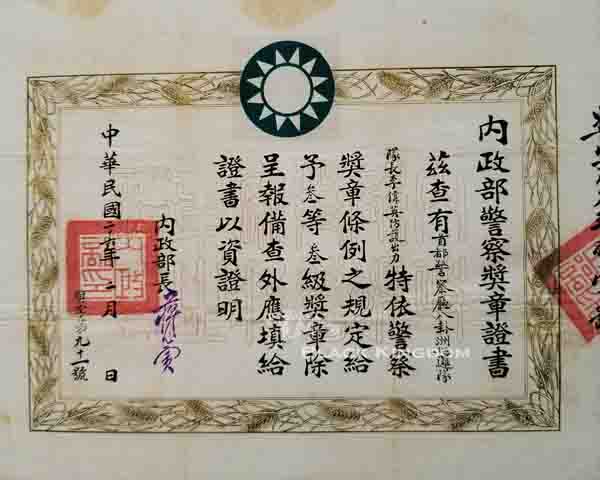 內政部警察獎章證書
茲查有首都警察廳八卦洲
隊長李偉英防護出力特依警察
獎章條例之規定給
予叁等叁級獎章除
呈報備查外應填給
證書以資證明
內政部長
中華民國二十五年一月 日
第九十一號
BLACK KINGDOM